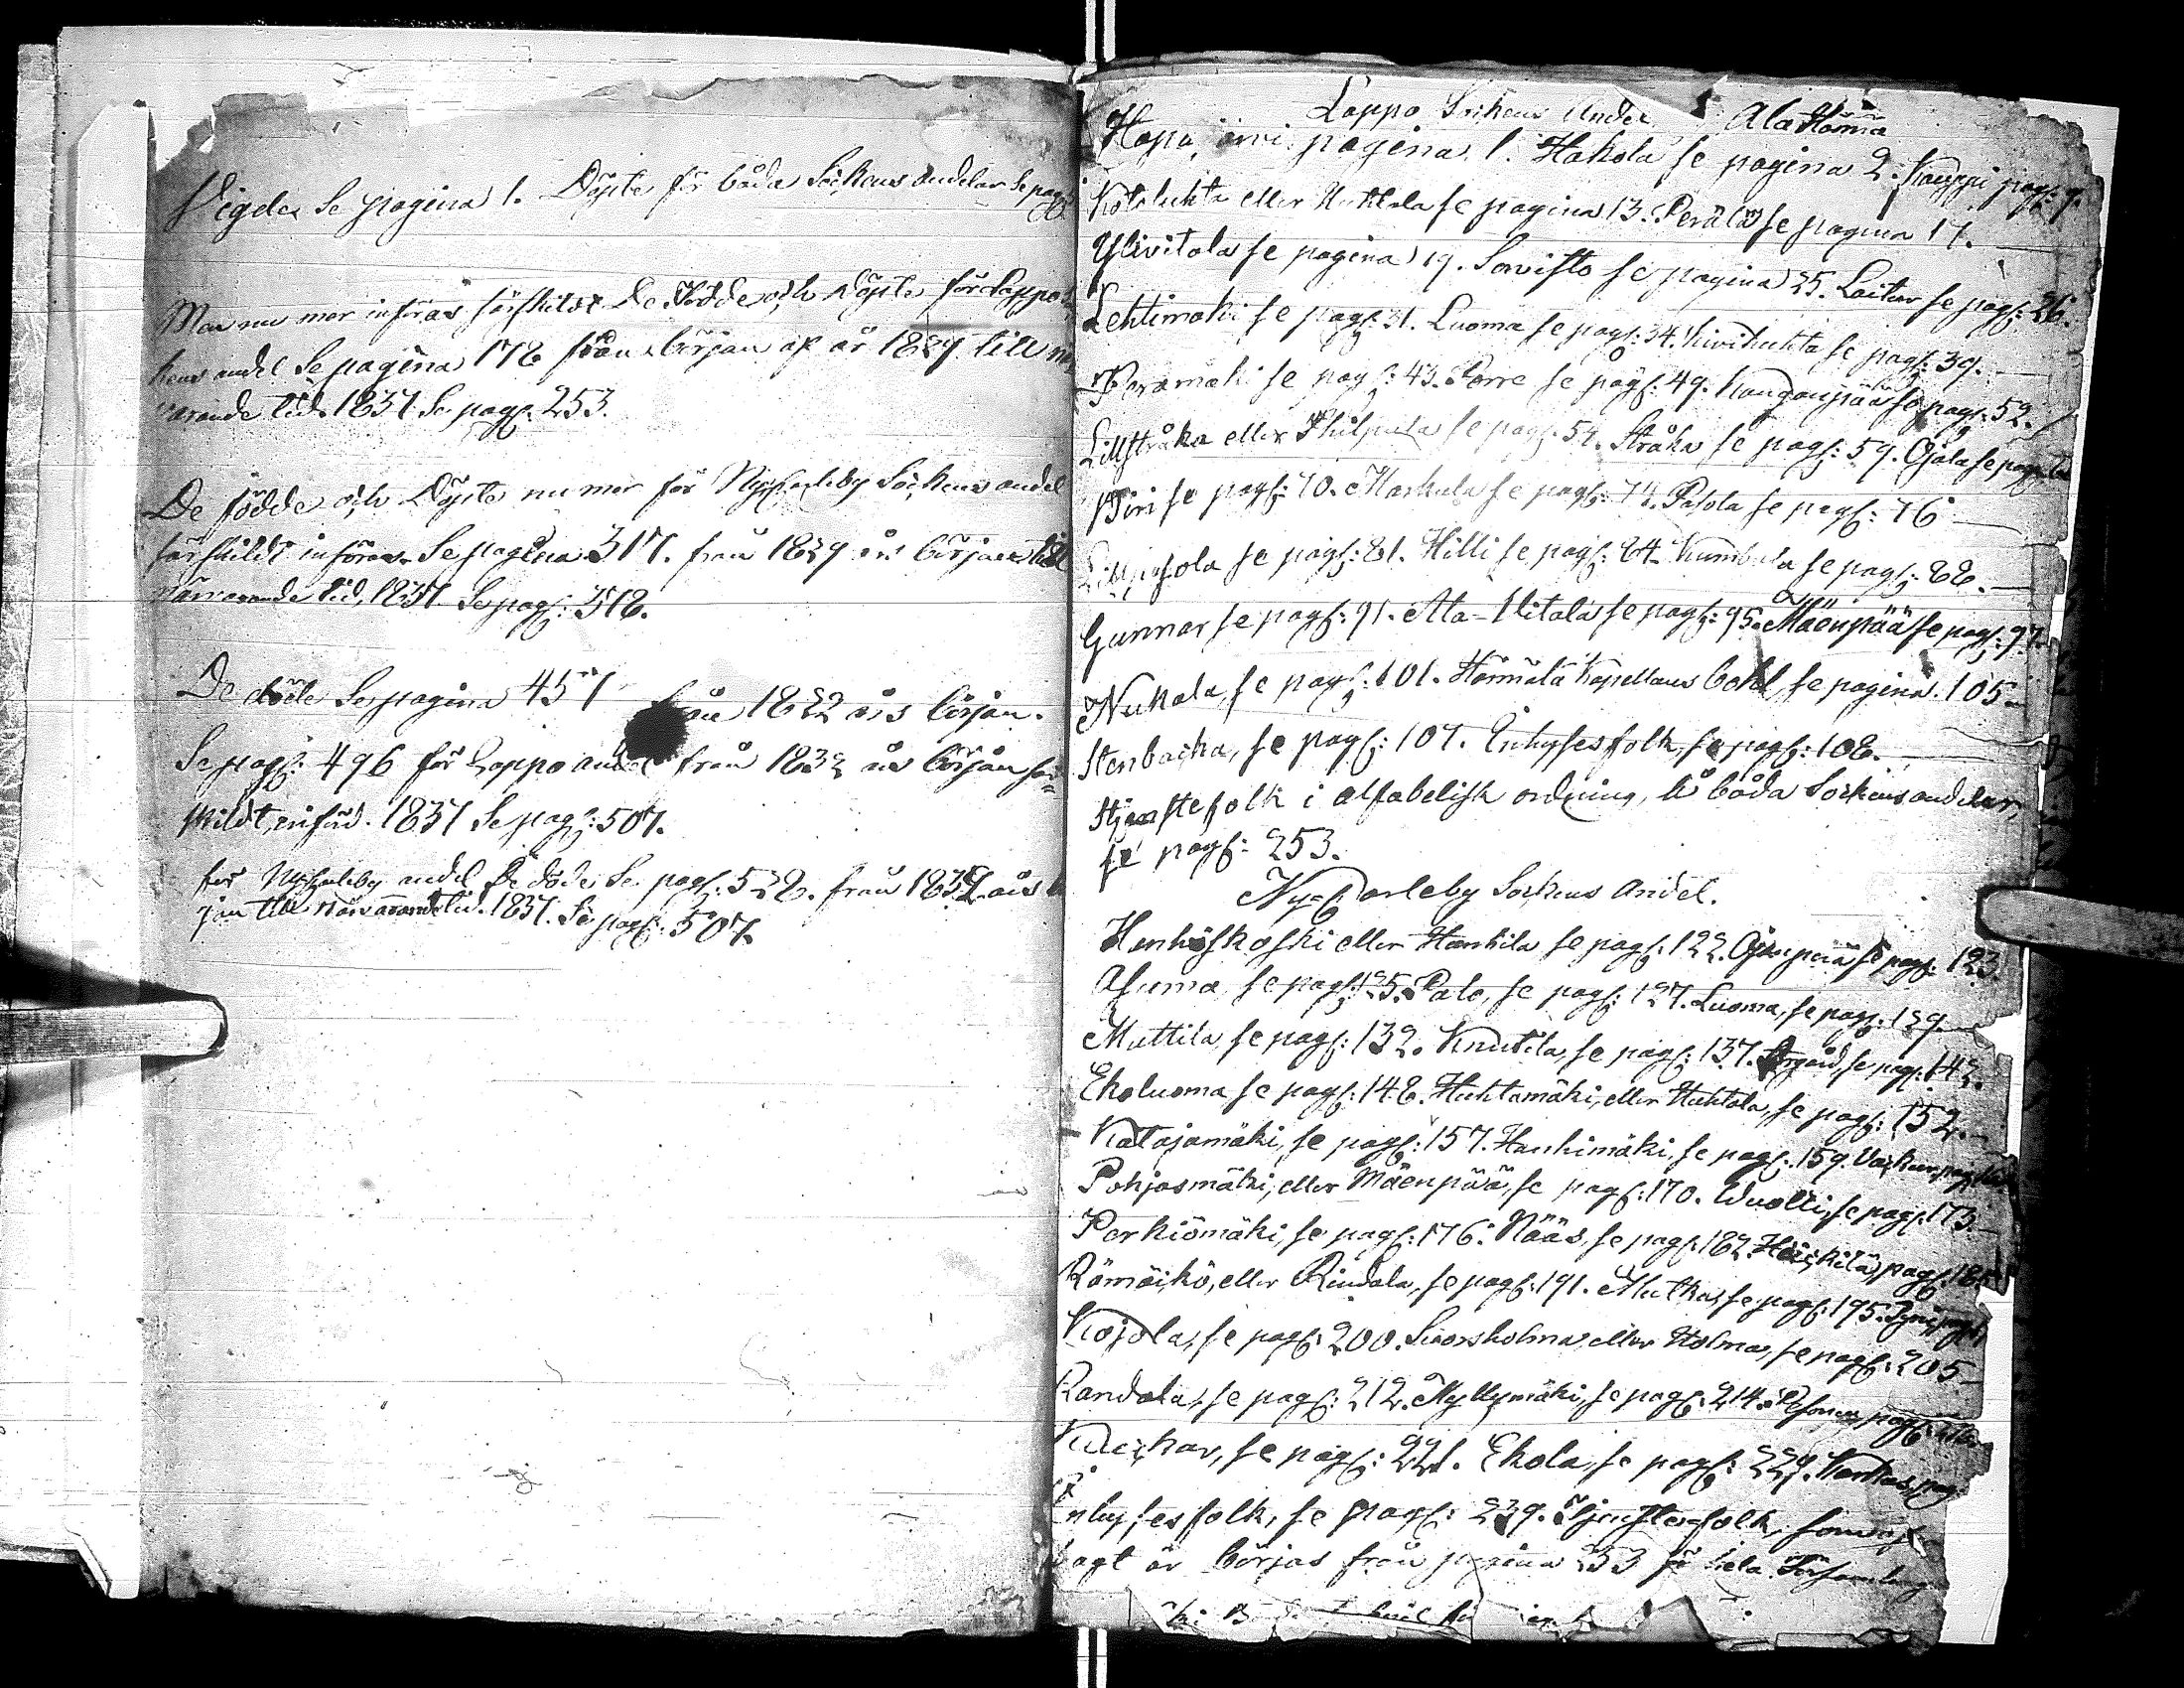 Vigde, Se pagina 1. Döpte för båda Sockens andelar Se pag
Mera nu mer införas särskildt De Födde och Döpte för Lappo
kens andel Se pagina 178 från början af år 1829 till
varande tid. 1837 Se pag: 253.
De födde och Döpte nu mer för NyCarleby Sockens andel
särskildt införas. Se pagina 317. från 1829 års början till
närvarande tid, 1837 Se pag: 318.
De döde Se pagina 457 från 1822 års början.
Se pag: 496 för Lappo andel från 1832 års början sär=
skildt, införd. 1837 Se pag: 507.
för NyCarleby andel De döde Se pag: 528. från 1832 års
jan till närvarande tid. 1837. Se pag: 507.
Lappo Sockens Andel Ala Härmä
Hapajärvi pagina 1. Hakola se pagina 2. Kauppi pag: 9.
Kotoluhta eller Huhtala se pagina 13. Perälä se pagina 17.
Ylivitala se pagina 19. Sorvisto se pagina 25. Laitur se pag: 26.
Lehtimäki se pag: 31. Luoma se pag: 34. Kiviluhta se pag: 39.
Peramäki se pag: 43. Porre se pag: 49. Kanganpää se pag: 52.
Lillstråka eller Philpula se pag: 54. Stråka se pag: 59. Ojala se pag:
Piri se pag: 70. Markula se pag: 74. Pasola se pag: 76
Lillpasola se pag: 81. Hilli se pag: 84. Kumbula se pag: 88.
Gunnar se pag: 91. Ala-Vitala se pag: 95. Mäenpää se pag: 97.
Nukala, se pag: 101. Härmälä Kapellans bohl, se pagina 105.
Stenbacka, se pag: 107. Inhyses folk, se pag: 108.
Stjenstefolk i alfabetisk ordning, i båda Sockens andelar,
se pag: 253.
NyCarleby Sockens Andel.
Henhiskoski eller Hanhila se pag: 122. Ojanperä se pag: 123.
Asuma, se pag: 125. Palo, se pag: 127. Luoma, se pag: 129
Muttila, se pag: 132. Knutila, se pag: 137. se pag: 142.
Ekoluoma se pag: 148. Huhtamäki, eller Huhtala, se pag: 152.
Katajamäki, se pag: 157. Hanhimäki, se pag: 159. Vackur, pag:
Pohjasmäki, eller Mäenpää, se pag: 170. Wuolli, se pag: 173.
Perkiömäki, se pag: 176. Nääs, se pag: 182. Häickilä, pag: 185
Römäikö, eller Rindala, se pag: 191. Mutka, se pag: 195.
Kojola, se pag: 200. Svorsholma, eller Holma, se pag: 205
Randala, se pag: 212. Myllymäki, se pag: 214. Pesonen pag:
Kuickar, se pag: 221. Ekola, se pag: 229. Karhas, pag:
Inhyses folk, se pag: 239. Tjenste folk, som
sagt är börjas från pagina 253 för hela Församling